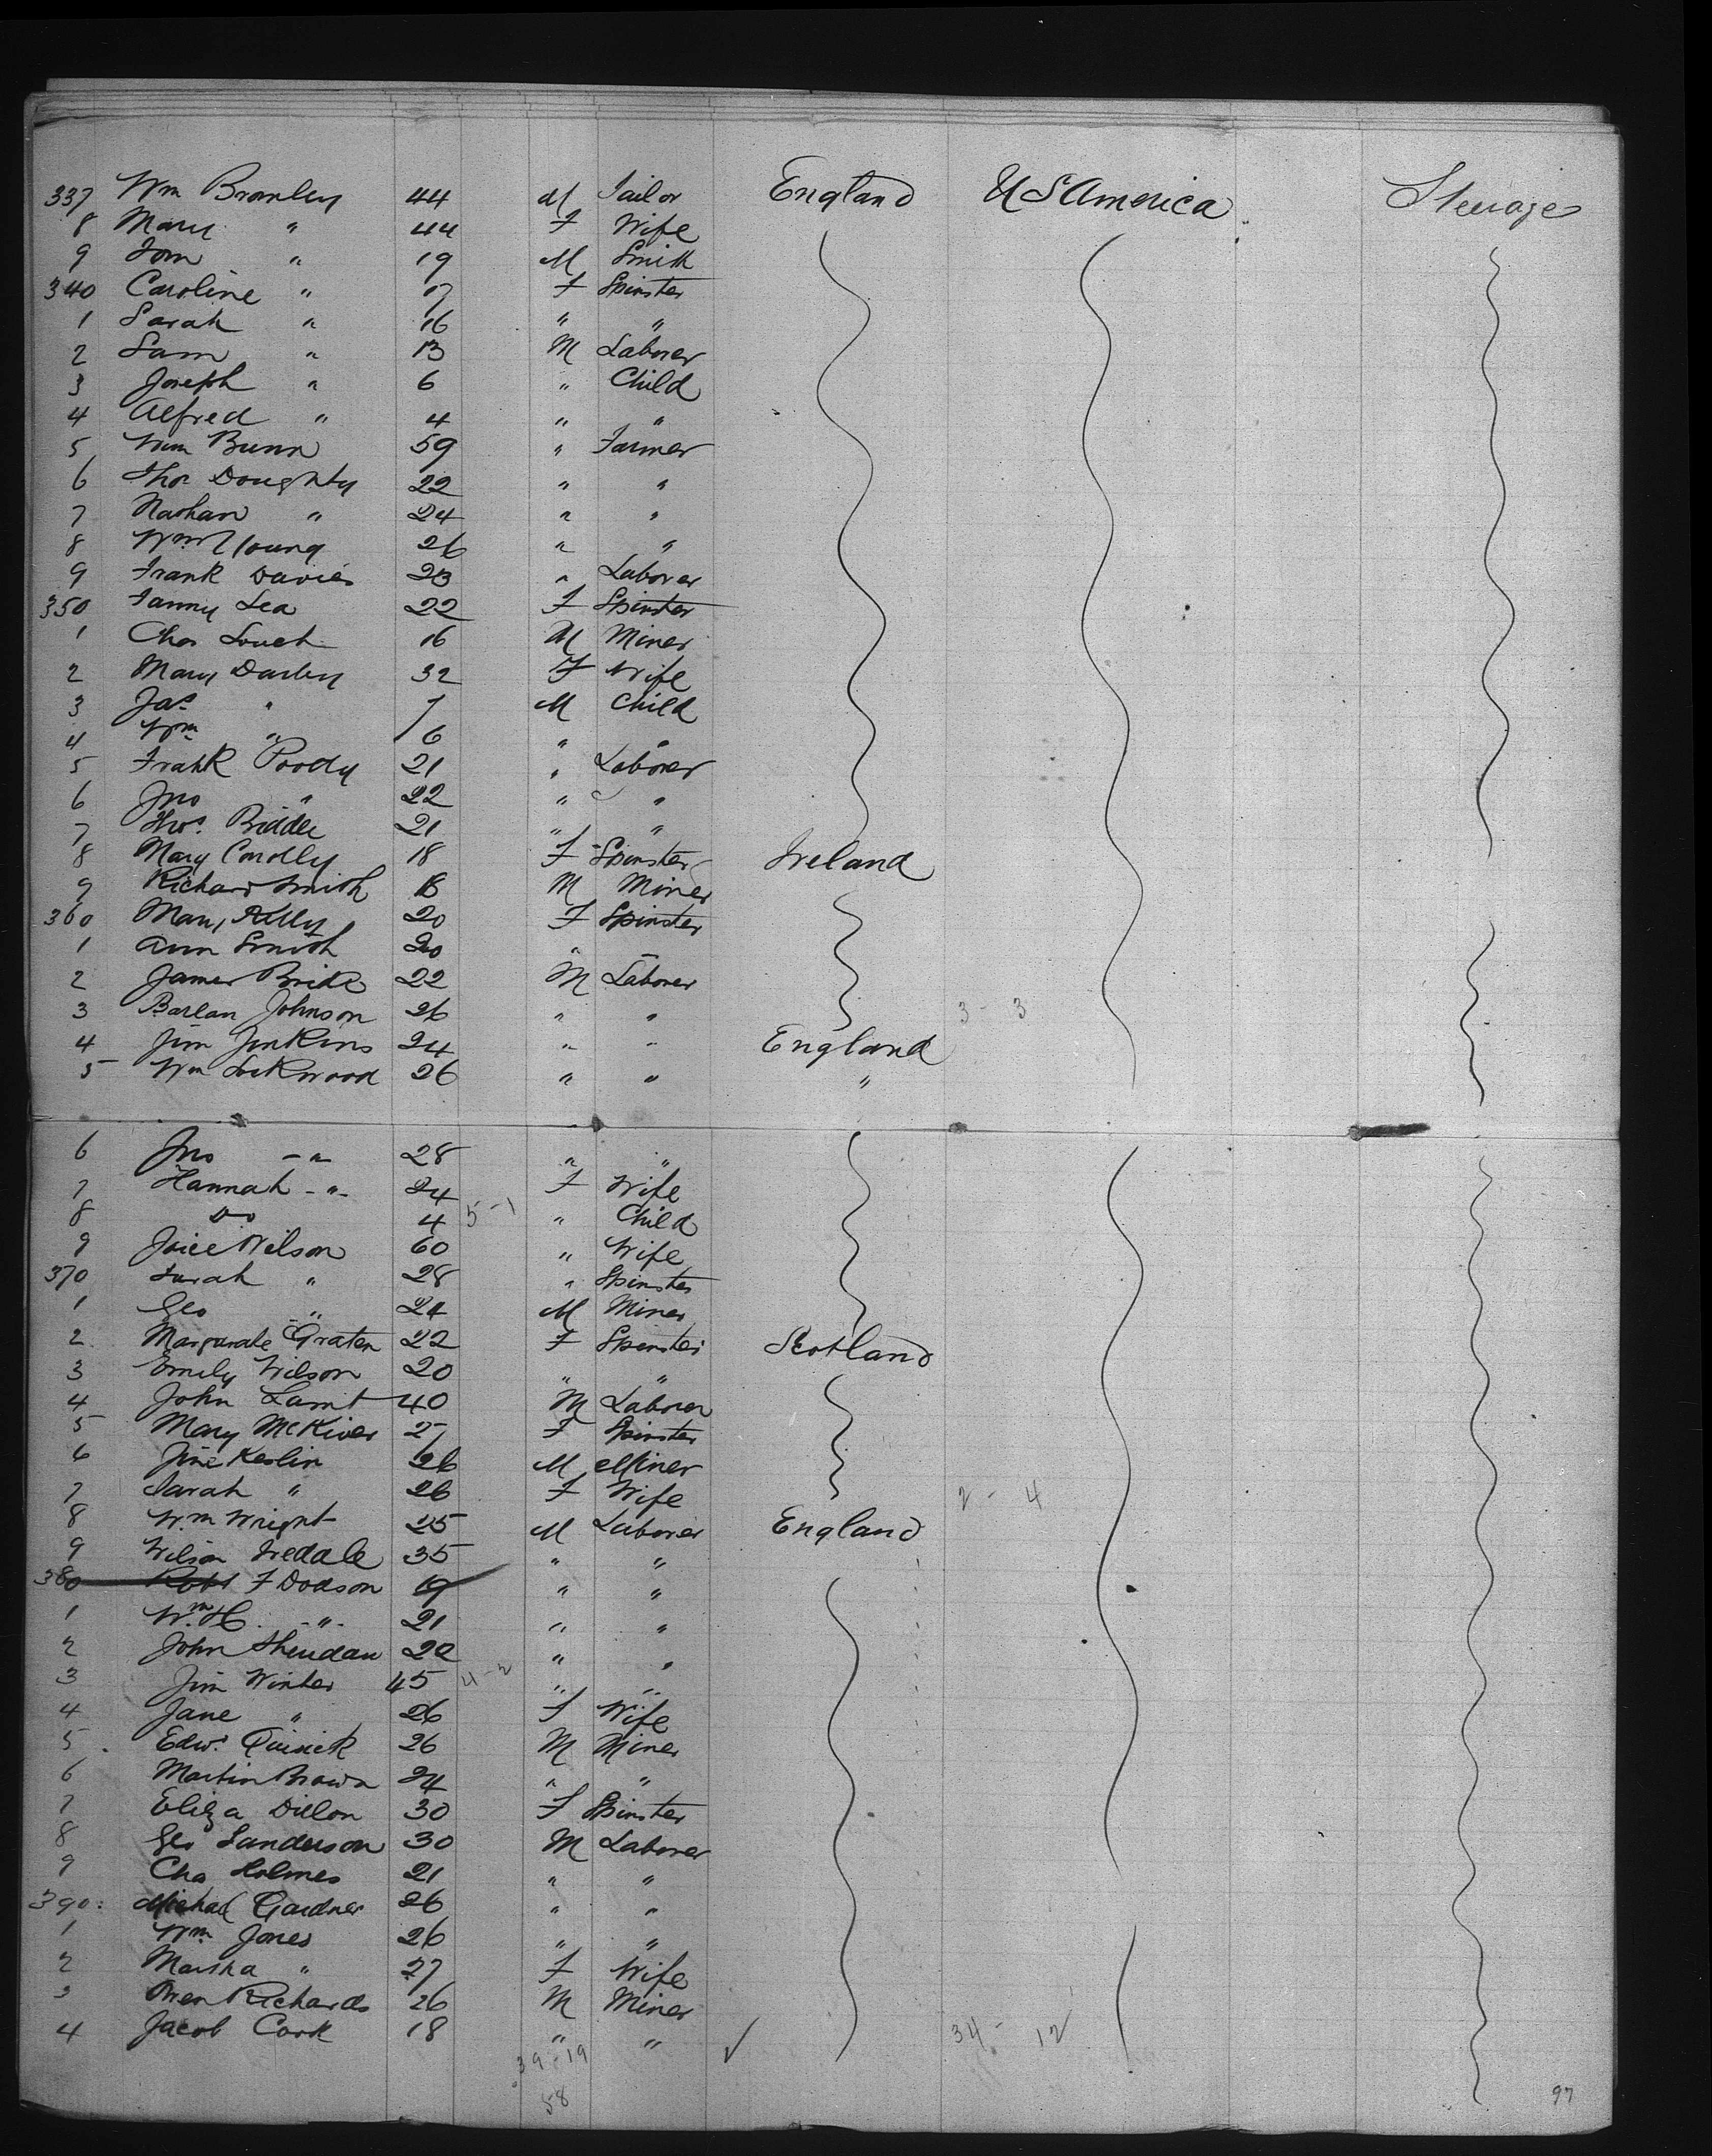 337 Wm Bromley 44 M Tailor England US America Steerage
8 Mary " 44 F Wife
9 Tom " 19 M Smith
340 Caroline " 17 F Spinster
1 Sarah " 16 " "
2 Sam " 13 M Laborer
3 Joseph " 6 " Child
4 Alfred " 4 " "
5 Wm Bunn 59 " Farmer
6 Thos Doughty 22 " "
7 Nathan " 24 " "
8 Wm Young 26 " "
9 Frank Davies 23 " Laborer
350 Fanny Lea 22 F Spinster
1 Chas 16 M Miner
2 Mary Darley 32 F Wife
3 Jas " 7 M Child
4 Wm " 6 " "
5 Frank Poody 21 " Laborer
6 Jno " 22 " "
7 Thos. Biddle 21 " "
8 Mary Conolly 18 F Spinster Ireland
9 Richard Smith 18 M Miner
360 Mary Kelly 20 F Spinster
1 Ann Smith 20 " "
2 James Bride 22 M Laborer
3 Johnson 26 " " 3 - 3
4 Jim Jenkins 24 " " England
5 Wm Lockwood 26 " " "
6 Jno - " 28 " "
7 Hannah - " - 24 F Wife
8 Do 4 5 - 1 " Child
9 Wilson 60 " Wife
370 Sarah " 28 " Spinster
1 Geo " 24 M Miner
2 Margarate Graten 22 F Spinster Scotland
3 Emily Wilson 20 " "
4 John Lamt 40 M Laborer
5 Mary McKiver 27 F Spinster
6 Jim Keslin 26 M Miner
7 Sarah " 26 F Wife 2 - 4
8 Wm Wright 25 M Laborer England
9 Wilson Iredale 35 " "
380 Robt F Dodson 19 " "
1 Wm H. - " - 21 " "
2 John Sheridan 20 " "
3 Jim Winter 45 4 - 2 " "
4 Jane " 26 F Wife
5 Edwd 26 M Miner
6 Martin Brown 24 " "
7 Eliza Dillon 30 F Spinster
8 Geo Sanderson 30 M Laborer
9 Chas Holmes 21 " "
390 Michael Gardner 26 " "
1 Wm Jones 26 " "
2 Martha " 27 F Wife
3 Owen Richards 26 M Miner
4 Jacob Cook 18 " " ✓ 34 - 12
39 - 19
58
97